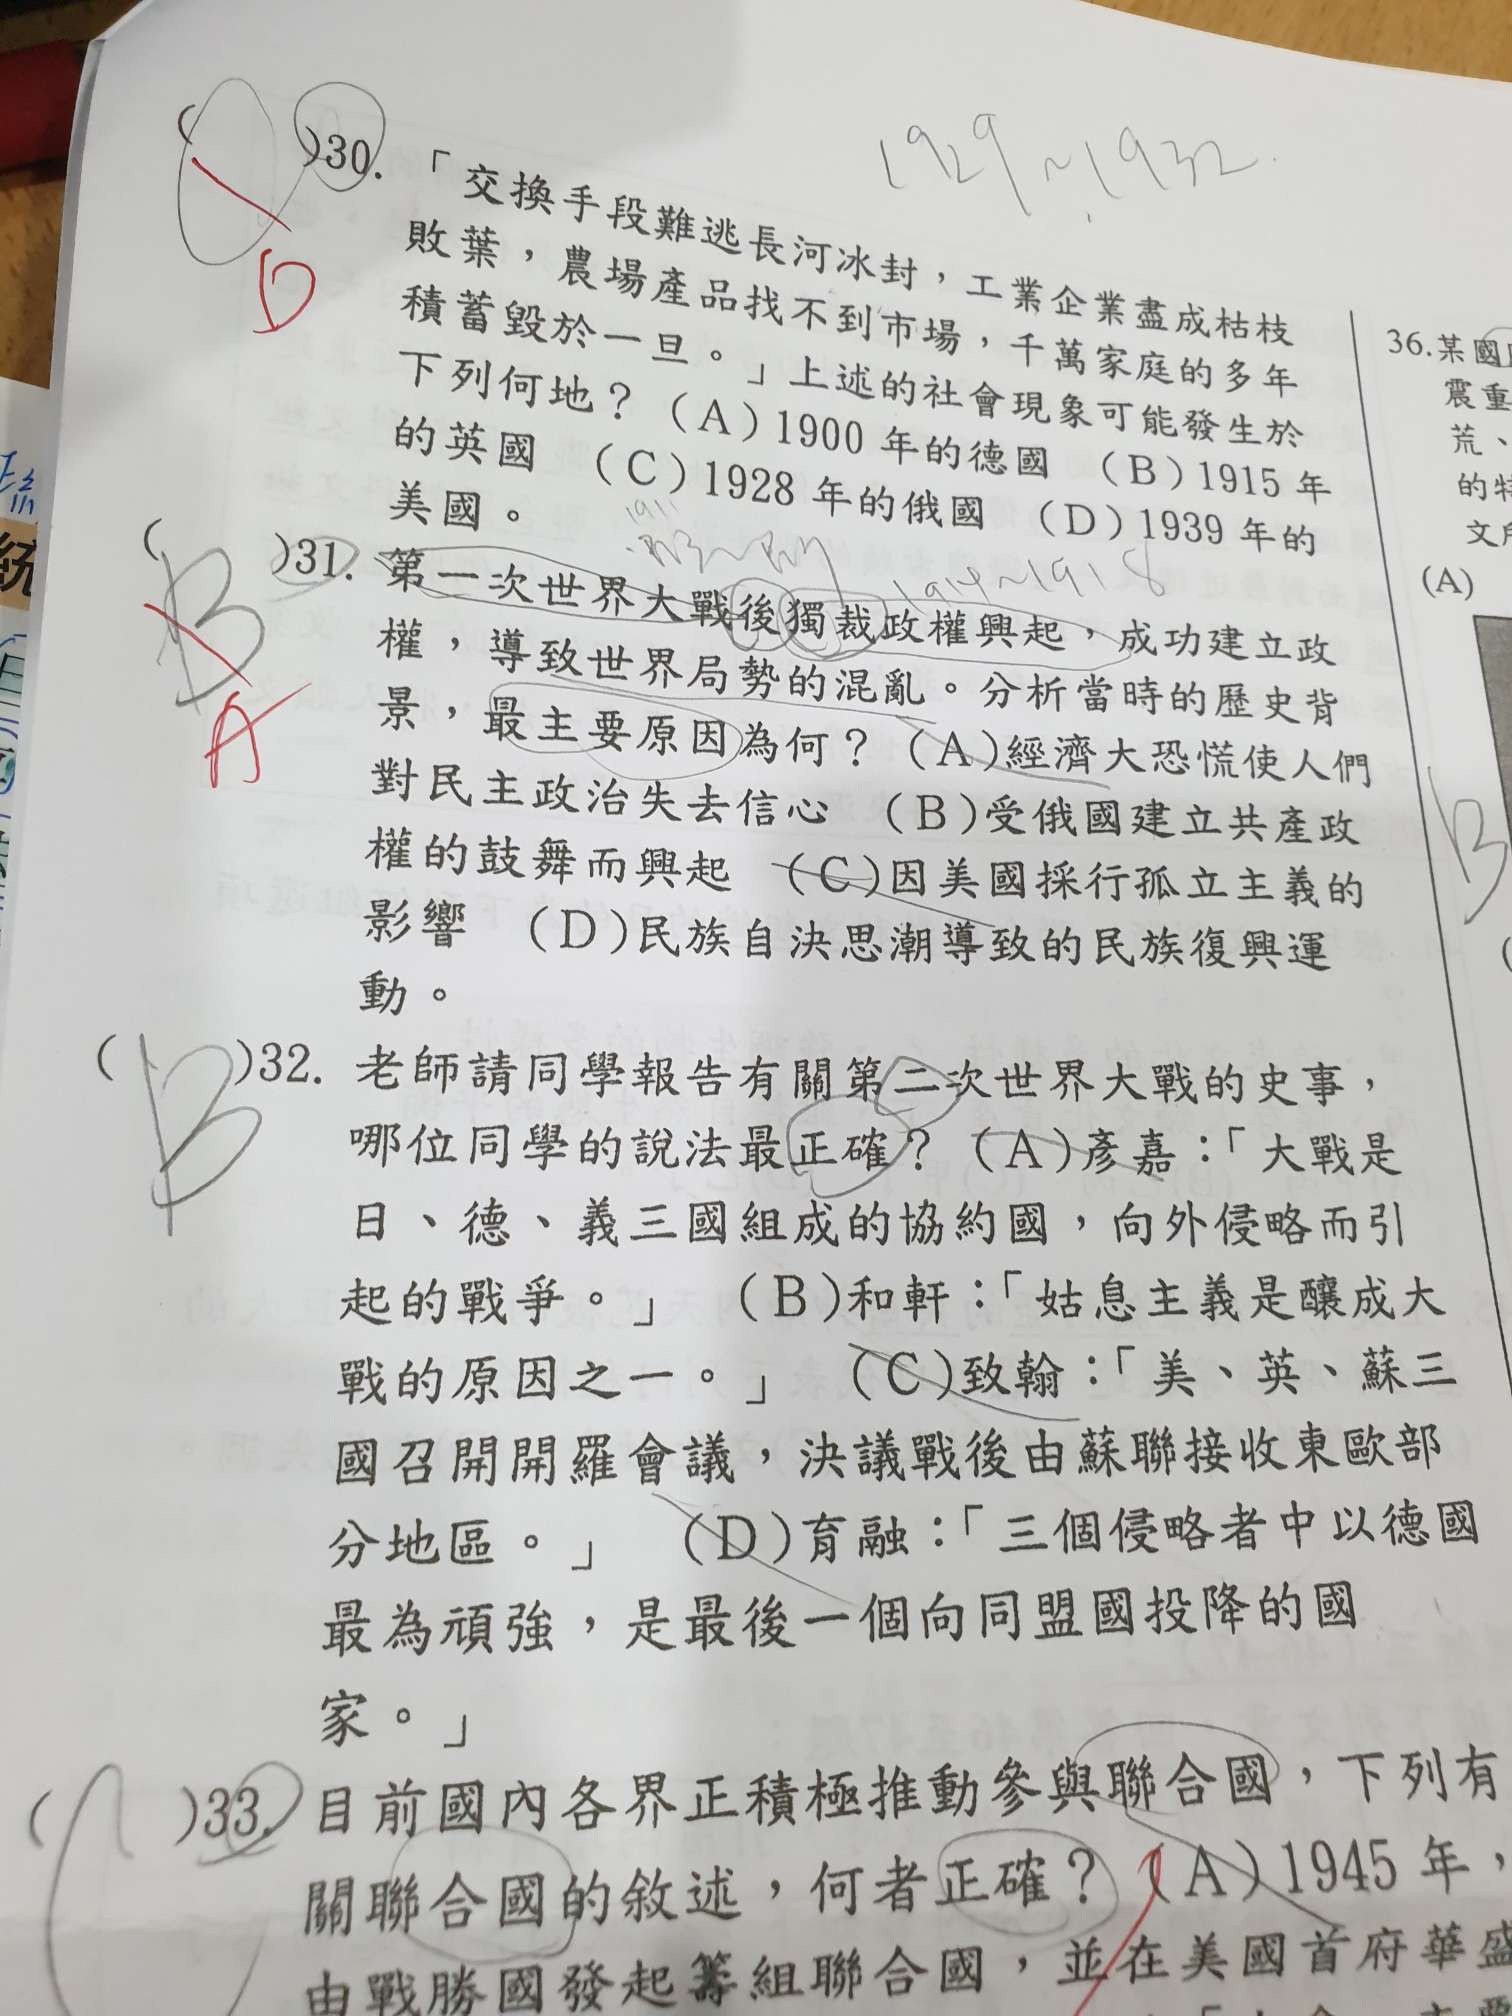 1929~1932
( )30. 「交換手段難逃長河冰封，工業企業盡成枯枝
敗葉，農場產品找不到市場，千萬家庭的多年
積蓄毀於一旦。」上述的社會現象可能發生於
下列何地？(A)1900 年的德國 (B)1915 年
的英國 (C)1928 年的俄國 (D)1939 年的
美國。
D
1911
1914~1918
(B)31. 第一次世界大戰後獨裁政權興起，成功建立政
權，導致世界局勢的混亂。分析當時的歷史背
景，最主要原因為何？(A)經濟大恐慌使人們
對民主政治失去信心 (B)受俄國建立共產政
權的鼓舞而興起 (C)因美國採行孤立主義的
影響 (D)民族自決思潮導致的民族復興運
動。
A
(B)32. 老師請同學報告有關第二次世界大戰的史事，
哪位同學的說法最正確？(A)彥嘉：「大戰是
日、德、義三國組成的協約國，向外侵略而引
起的戰爭。」 (B)和軒：「姑息主義是釀成大
戰的原因之一。」 (C)致翰：「美、英、蘇三
國召開開羅會議，決議戰後由蘇聯接收東歐部
分地區。」 (D)育融：「三個侵略者中以德國
最為頑強，是最後一個向同盟國投降的國
家。」
( )33. 目前國內各界正積極推動參與聯合國，下列有
關聯合國的敘述，何者正確？(A)1945 年，
由戰勝國發起籌組聯合國，並在美國首府華盛
36.某國
震重
荒、
的特
文所
(A)
B
統